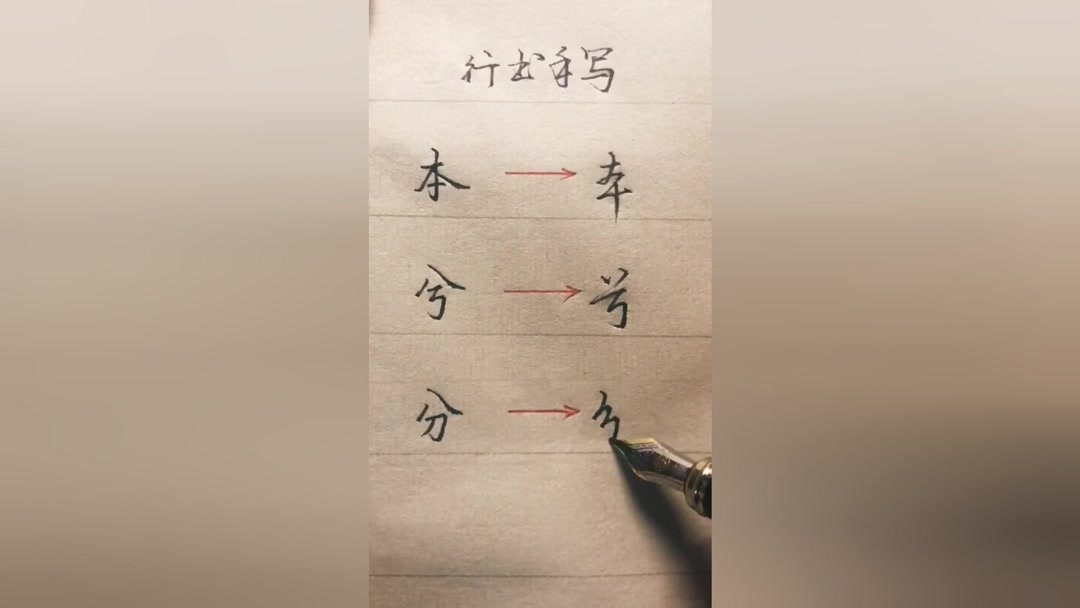 行书手写
本 → 本
兮 → 兮
分 →